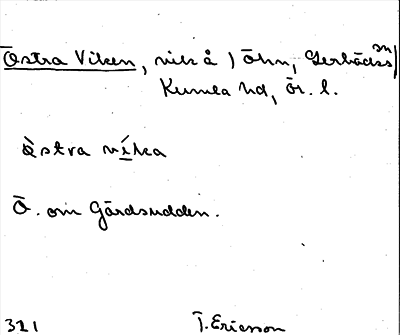 Östra Viken, vik å Öhn, Gerbäcks sn
Kumla hd, Ör. l.
östra víka
Ö. om Gårdsudden.
321 T. Ericsson